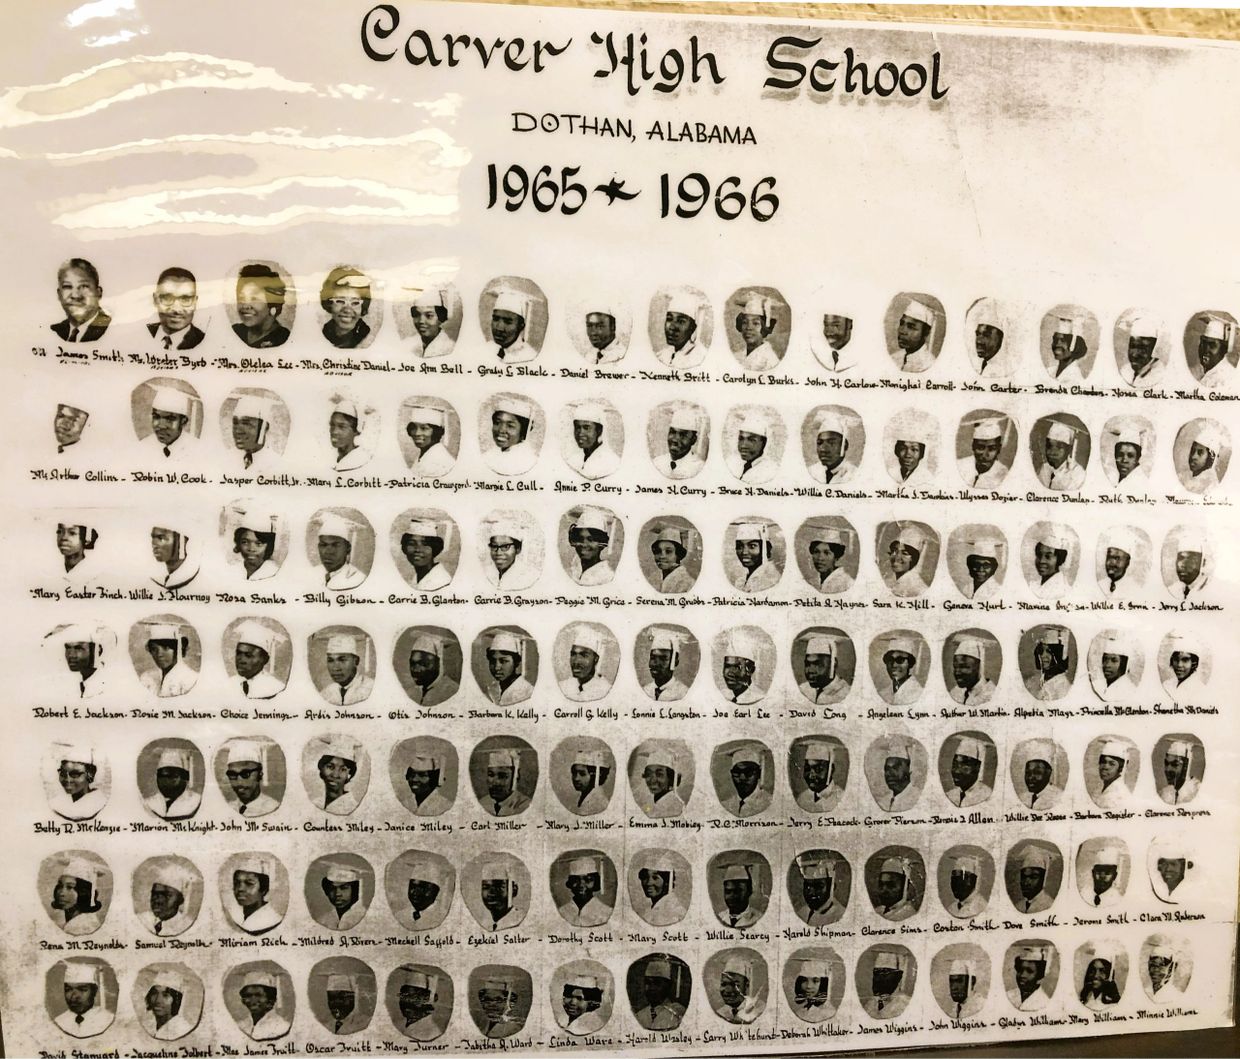 Carver High School
DOTHAN, ALABAMA
1965 ★ 1966
James Smith - Mr. Wreter Byrd - Mrs. Otelea Lee - Mrs. Christine Daniel - Joe Ann Bell - Grady L. Black - Daniel Brewer - Kenneth Britt - Carolyn L. Burks - John H. Carlow - Monighai Carroll - John Carter - Brenda - Hosea Clark - Martha Coleman
Arthur Collins - Robin W. Cook - Jasper Corbitt, Jr. - Mary L. Corbitt - Patricia Crawford - Margie L. Cull - Annie P. Curry - James H. Curry - Bruce H. Daniels - Willie C. Daniels - Martha J. Dawkins - Ulysses Dozier - Clarence Dunlap - Ruth Dunlap
Mary Easter Finch - Willie J. Flournoy - Roza Banks - Billy Gibson - Carrie B. Glanton - Carrie D. Grayson - Peggie M. Grice - Serena M. Grubbs - Patricia Hardamon - Petita A. Haynes - Sara K. Hill - Genova Hurt - Maxine - Willie E. Irvin - Jerry L. Jackson
Robert E. Jackson - Rosie M. Jackson - Choice Jennings - Ardis Johnson - Otis Johnson - Barbara K. Kelly - Carroll G. Kelly - Lonnie L. Langston - Joe Earl Lee - David Long - Angelean Lynn - Auther W. Martin - Alpetia Mays - Priscella McClendon - Shenetha McDaniels
Betty D. McKenzie - Marion McKnight - John McSwain - Countess Miley - Janice Miley - Carl Miller - Mary J. Miller - Emma J. Mobley - R.C. Morrison - Jerry E. Peacock - Grover Pierson - J. Allen - Willie Dee Reese - Barbara Register - Clarence Respress
Rena M. Reynolds - Samuel Reynolds - Miriam Rich - Mildred A. Rivers - Mechell Saffold - Ezekiel Salter - Dorothy Scott - Mary Scott - Willie Searcy - Harold Shipman - Clarence Sims - Coston Smith - Dove Smith - Jerome Smith - Clara M. Anderson
David Stanyard - Jacqueline Tolbert - Mae James Truitt - Oscar Truitt - Mary Turner - Tabitha A. Ward - Linda Ware - Harold Wesley - Larry Whitehurst - Deborah Whittaker - James Wiggins - John Wiggins - Gladys William - Mary Williams - Minnie Williams